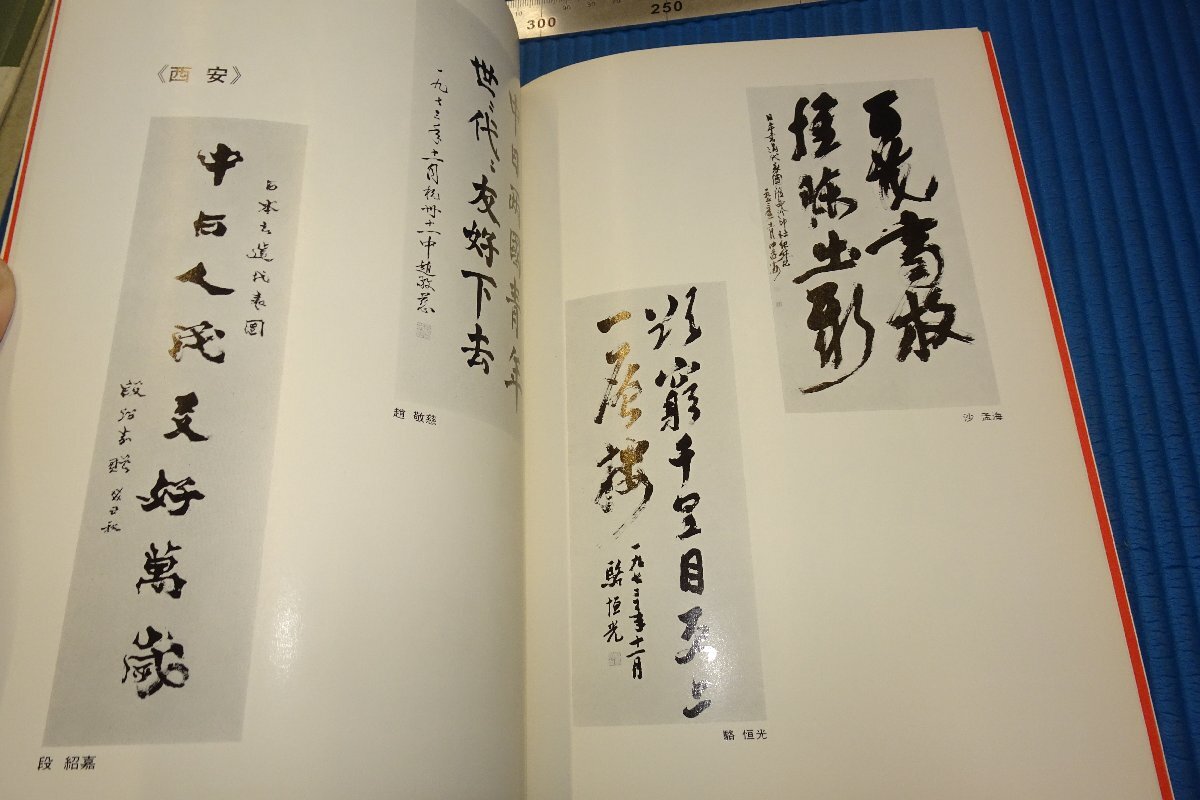 300
250
《西 安》
日本书道代表团
中日人民友好萬歲
段绍嘉赠 癸丑秋
段 紹嘉
中日两國青年
世々代々友好下去
一九七三年十一月杭州十一中趙敬慈
趙 敬慈
百花齊放
推陳出新
沙 孟海
欲窮千里目更上
一层楼
一九七三年十一月
駱恒光
駱 恒光